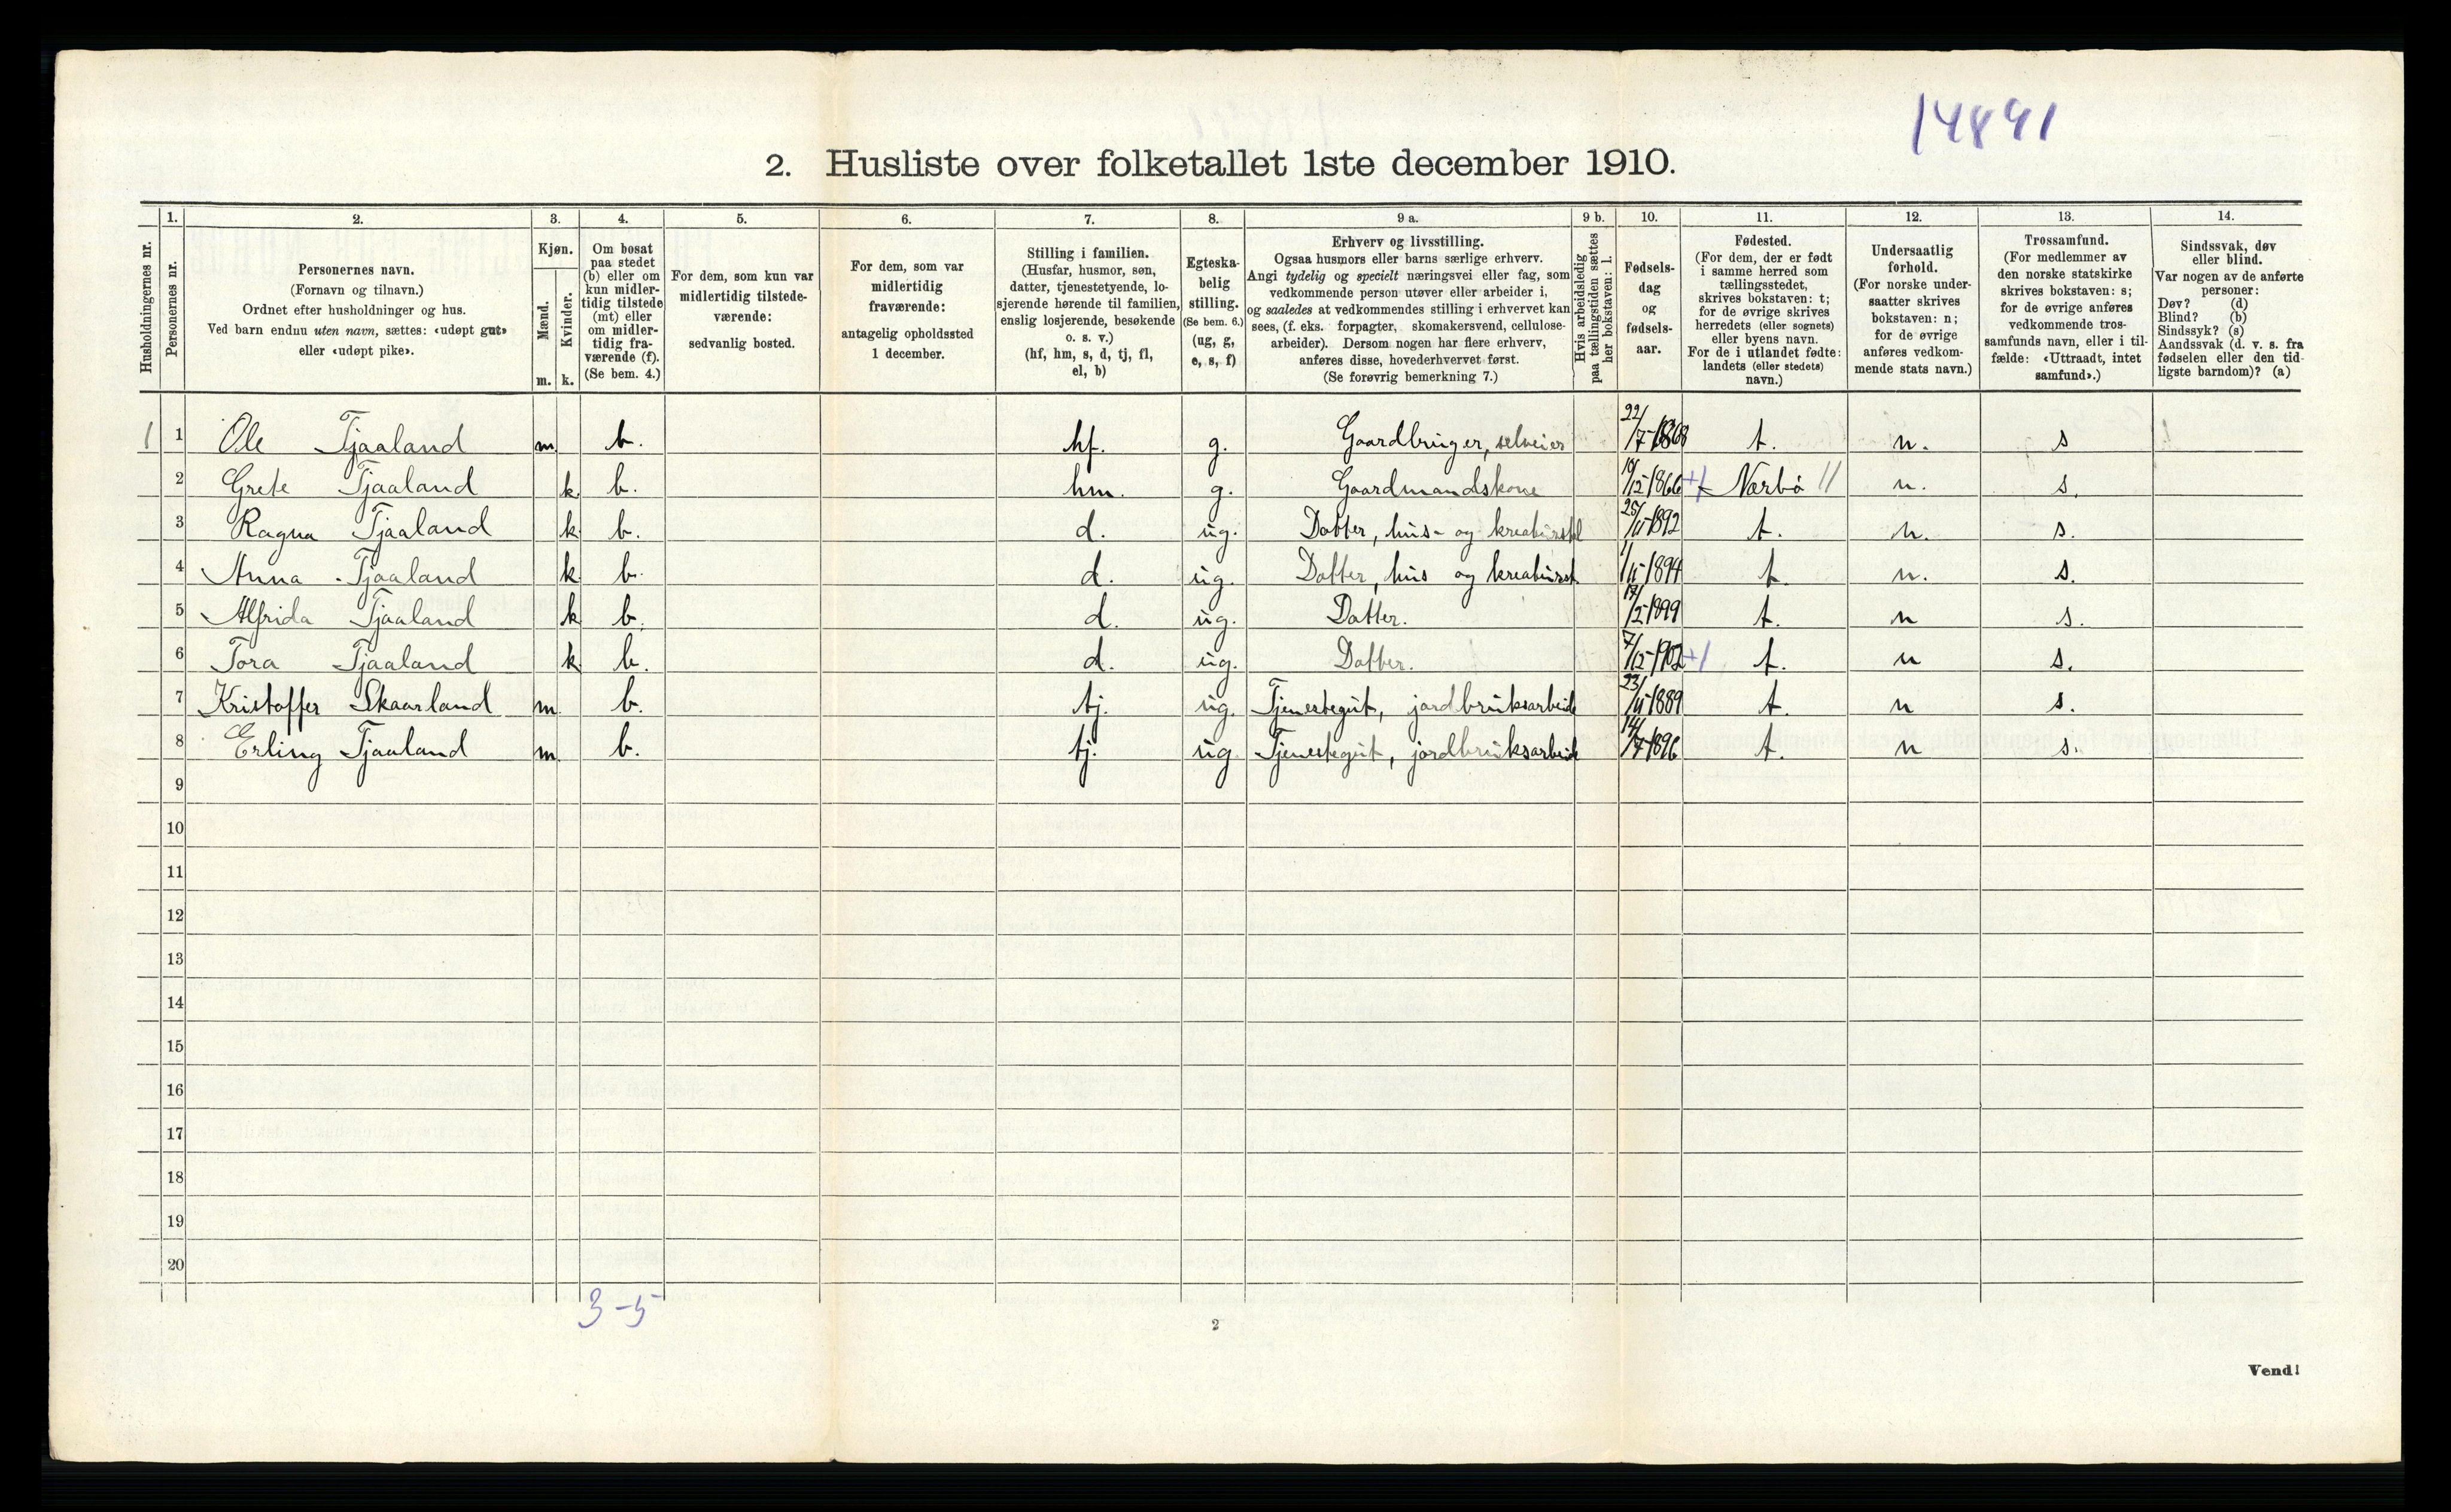 14891
2. Husliste over folketallet 1ste december 1910.
Husholdningernes nr.
1.
Personernes nr.
2.
Personernes navn.
(Fornavn og tilnavn.)
Ordnet efter husholdninger og hus.
Ved barn endnu uten navn, sættes: «udøpt gut»
eller «udøpt pike».
3.
Kjøn.
Mænd.
Kvinder.
m.
k.
4.
Om bosat
paa stedet
(b) eller om
kun midler-
tidig tilstede
(mt) eller
om midler-
tidig fra-
værende (f).
(Se bem. 4.)
5.
For dem, som kun var
midlertidig tilstede-
værende:
sedvanlig bosted.
6.
For dem, som var
midlertidig
fraværende:
antagelig opholdssted
1 december.
7.
Stilling i familien.
(Husfar, husmor, søn,
datter, tjenestetyende, lo-
sjerende hørende til familien,
enslig losjerende, besøkende
o. s. v.)
(hf, hm, s, d, tj, fl,
el, b)
8.
Egteska-
belig
stilling.
(Se bem. 6.)
(ug, g,
e, s, f)
9 a.
Erhverv og livsstilling.
Ogsaa husmors eller barns særlige erhverv.
Angi tydelig og specielt næringsvei eller fag, som
vedkommende person utøver eller arbeider i,
og saaledes at vedkommendes stilling i erhvervet kan
sees, (f. eks. forpagter, skomakersvend, cellulose-
arbeider). Dersom nogen har flere erhverv,
anføres disse, hovederhvervet først.
(Se forøvrig bemerkning 7.)
9 b.
Hvis arbeidsledig
paa tællingstiden sættes
her bokstaven: l.
10.
Fødsels-
dag
og
fødsels-
aar.
11.
Fødested.
(For dem, der er født
i samme herred som
tællingsstedet,
skrives bokstaven: t;
for de øvrige skrives
herredets (eller sognets)
eller byens navn.
For de i utlandet fødte:
landets (eller stedets)
navn.)
12.
Undersaatlig
forhold.
(For norske under-
saatter skrives
bokstaven: n;
for de øvrige
anføres vedkom-
mende stats navn.)
13.
Trossamfund.
(For medlemmer av
den norske statskirke
skrives bokstaven: s;
for de øvrige anføres
vedkommende tros-
samfunds navn, eller i til-
fælde: «Uttraadt, intet
samfund».)
14.
Sindssvak, døv
eller blind.
Var nogen av de anførte
personer:
Døv? (d)
Blind? (b)
Sindssyk? (s)
Aandssvak (d. v. s. fra
fødselen eller den tid-
ligste barndom)? (a)
1 1 Ole Tjaaland m. b. hf. g. Gaardbruger, selveier 22/7-1868 t. n. s
2 Grete Tjaaland k. b. hm. g. Gaardmandskone 18/12-1866 +1 Nærbö // n. s.
3 Ragna Tjaaland k. b. d. ug. Datter, hus- og kreaturstel 25/11-1892 t. n. s.
4 Anna Tjaaland k. b. d. ug. Datter, hus og kreaturst 1/11-1894 t. n. s.
5 Alfrida Tjaaland k b. d. ug. Datter. 17/2-1899 t. n s.
6 Tora Tjaaland k b. d. ug. Datter. 7/12-1902 +1 t. n s.
7 Kristoffer Skaarland m. b. tj. ug. Tjenestegut, jordbruksarbeide 23/11-1889 t. n s.
8 Erling Tjaaland m. b. tj. ug. Tjenestegut, jordbruksarbeide 14/7-1896 t. n s.
9
10
11
12
13
14
15
16
17
18
19
20
3-5
2
Vend!